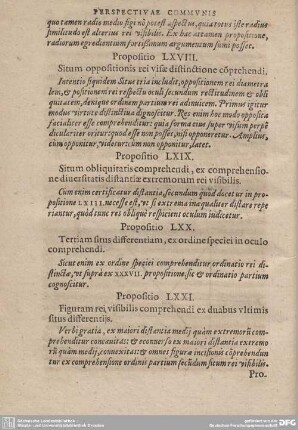 PERSPECTIVAE COMMVNIS
quo tamen radio medio figi nõ potest aspectus, quia tanti iste radius
similitudo est alterius rei visibilis. Ex hac attamen propositione,
radiorum egredientium fortissimum argumentum sumi posset.
Propositio LXVIII.
Situm oppositionis rei visæ distinctione cõprehendi.
Intentio siquidem Situs tria includit, oppositionem rei diametra
lem, & positionem rei respectu oculi secundum rectitudinem & obli
quitatem, denique ordinem partium rei adinuicem. Primus igitur
modus virtute distinctiua dignoscitur. Res enim hoc modo opposita
faciliter esse comprehenditur: quia forma eius super visum perpẽ
diculariter oritur: quod esse non posset, nisi opponeretur. Amplius,
cum opponitur, videtur: cum non opponitur, latet.
Propositio LXIX.
Situm obliquitatis comprehendi, ex comprehensio-
ne diuersitatis distantiæ extremorum rei visibilis.
Cum enim certificatur distantia, secundum quod docet vr in pro
positione LXIII. necesse est, vt si extrema inæqualiter distare repe
riantur, quod tunc res obliquè respiciens oculum iudicetur.
Propositio LXX.
Tertiam situs differentiam, ex ordine speciei in oculo
comprehendi.
Sicut enim ex ordine speciei comprehenditur ordinatio rei di-
stincta, vt suprà ex XXXVII. propositione, sic & ordinatio partium
cognoscitur.
Propositio LXXI.
Figuram rei visibilis comprehendi ex duabus vltimis
situs differentijs.
Verbi gratia, ex maiori distantia medij quàm extremorũ com-
prehenditur concauitas: & econuerso ex maiori distantia extremo
rũ quàm medij, conuexitas: & omnes figuræ incisionis cõprehendun
tur ex comprehensione ordinis partium secundum situm rei visibilis.
Pro.